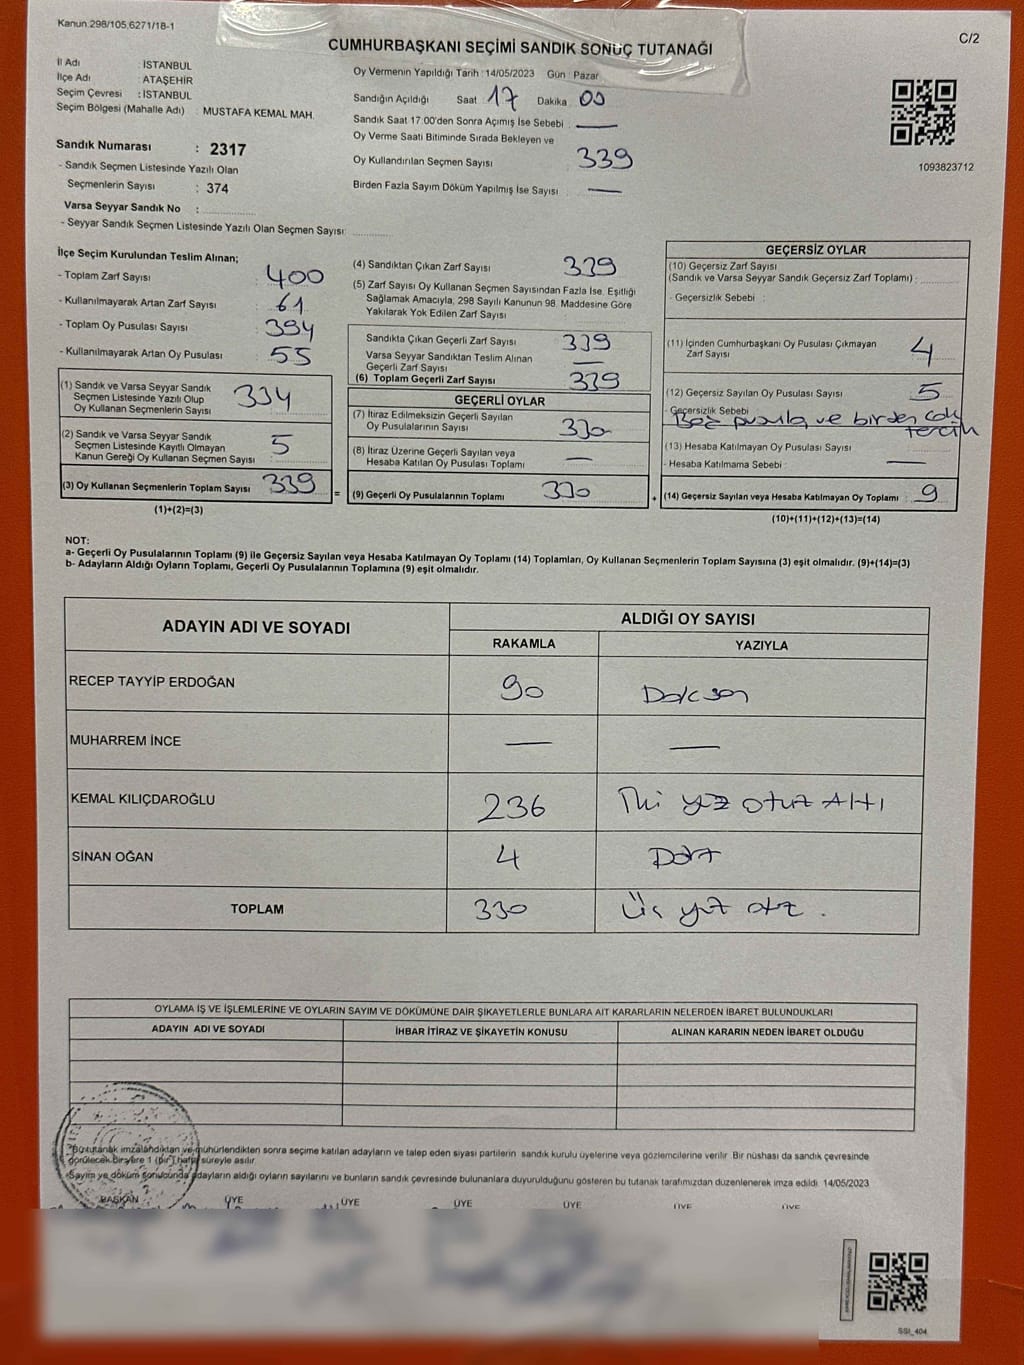 Kanun.298/105,6271/18-1
C/2
CUMHURBAŞKANI SEÇİMİ SANDIK SONUÇ TUTANAĞI
İl Adı : İSTANBUL
İlçe Adı : ATAŞEHİR
Seçim Çevresi : İSTANBUL
Seçim Bölgesi (Mahalle Adı) : MUSTAFA KEMAL MAH.
Sandık Numarası : 2317
- Sandık Seçmen Listesinde Yazılı Olan
Seçmenlerin Sayısı : 374
Varsa Seyyar Sandık No :
- Seyyar Sandık Seçmen Listesinde Yazılı Olan Seçmen Sayısı:
Oy Vermenin Yapıldığı Tarih : 14/05/2023 Gün : Pazar
Sandığın Açıldığı Saat : 17 Dakika : 00
Sandık Saat 17:00'den Sonra Açımış İse Sebebi : —
Oy Verme Saati Bitiminde Sırada Bekleyen ve
Oy Kullandırılan Seçmen Sayısı 339
Birden Fazla Sayım Döküm Yapılmış İse Sayısı : —
1093823712
İlçe Seçim Kurulundan Teslim Alınan;
- Toplam Zarf Sayısı : 400
- Kullanılmayarak Artan Zarf Sayısı : 61
- Toplam Oy Pusulası Sayısı : 394
- Kullanılmayarak Artan Oy Pusulası : 55
(1) Sandık ve Varsa Seyyar Sandık
Seçmen Listesinde Yazılı Olup
Oy Kullanan Seçmenlerin Sayısı 334
(2) Sandık ve Varsa Seyyar Sandık
Seçmen Listesinde Kayıtlı Olmayan
Kanun Gereği Oy Kullanan Seçmen Sayısı : 5
(3) Oy Kullanan Seçmenlerin Toplam Sayısı : 339
(1)+(2)=(3)
=
(4) Sandıktan Çıkan Zarf Sayısı : 339
(5) Zarf Sayısı Oy Kullanan Seçmen Sayısından Fazla İse, Eşitliği
Sağlamak Amacıyla, 298 Sayılı Kanunun 98. Maddesine Göre
Yakılarak Yok Edilen Zarf Sayısı :
Sandıkta Çıkan Geçerli Zarf Sayısı : 339
Varsa Seyyar Sandıktan Teslim Alınan
Geçerli Zarf Sayısı : —
(6) Toplam Geçerli Zarf Sayısı : 339
GEÇERLİ OYLAR
(7) İtiraz Edilmeksizin Geçerli Sayılan
Oy Pusulalarının Sayısı : 330
(8) İtiraz Üzerine Geçerli Sayılan veya
Hesaba Katılan Oy Pusulası Toplamı : —
(9) Geçerli Oy Pusulalarının Toplamı : 330
+
GEÇERSİZ OYLAR
(10) Geçersiz Zarf Sayısı
(Sandık ve Varsa Seyyar Sandık Geçersiz Zarf Toplamı) :
- Geçersizlik Sebebi :
(11) İçinden Cumhurbaşkanı Oy Pusulası Çıkmayan
Zarf Sayısı : 4
(12) Geçersiz Sayılan Oy Pusulası Sayısı : 5
- Geçersizlik Sebebi
Boş pusula ve birden çok
tercih
(13) Hesaba Katılmayan Oy Pusulası Sayısı :
- Hesaba Katılmama Sebebi : —
(14) Geçersiz Sayılan veya Hesaba Katılmayan Oy Toplamı : 9
(10)+(11)+(12)+(13)=(14)
NOT:
a- Geçerli Oy Pusulalarının Toplamı (9) ile Geçersiz Sayılan veya Hesaba Katılmayan Oy Toplamı (14) Toplamları, Oy Kullanan Seçmenlerin Toplam Sayısına (3) eşit olmalıdır. (9)+(14)=(3)
b- Adayların Aldığı Oyların Toplamı, Geçerli Oy Pusulalarının Toplamına (9) eşit olmalıdır.
ADAYIN ADI VE SOYADI ALDIĞI OY SAYISI
RAKAMLA YAZIYLA
RECEP TAYYİP ERDOĞAN 90 Doksan
MUHARREM İNCE — —
KEMAL KILIÇDAROĞLU 236 İki yüz otuz Altı
SİNAN OĞAN 4 Dört
TOPLAM 330 Üç yüz otuz.
OYLAMA İŞ VE İŞLEMLERİNE VE OYLARIN SAYIM VE DÖKÜMÜNE DAİR ŞİKAYETLERLE BUNLARA AİT KARARLARIN NELERDEN İBARET BULUNDUKLARI
ADAYIN ADI VE SOYADI İHBAR İTİRAZ VE ŞİKAYETİN KONUSU ALINAN KARARIN NEDEN İBARET OLDUĞU
*Bu tutanak imzalandıktan ve mühürlendikten sonra seçime katılan adayların ve talep eden siyasi partilerin sandık kurulu üyelerine veya gözlemcilerine verilir. Bir nüshası da sandık çevresinde
görülecek bir yere 1 (bir) hafta süreyle asılır.
*Sayım ve döküm sonucunda adayların aldığı oyların sayılarını ve bunların sandık çevresinde bulunanlara duyurulduğunu gösteren bu tutanak tarafımızdan düzenlenerek imza edildi. 14/05/2023
BAŞKAN ÜYE ÜYE ÜYE ÜYE ÜYE ÜYE
SSI_404